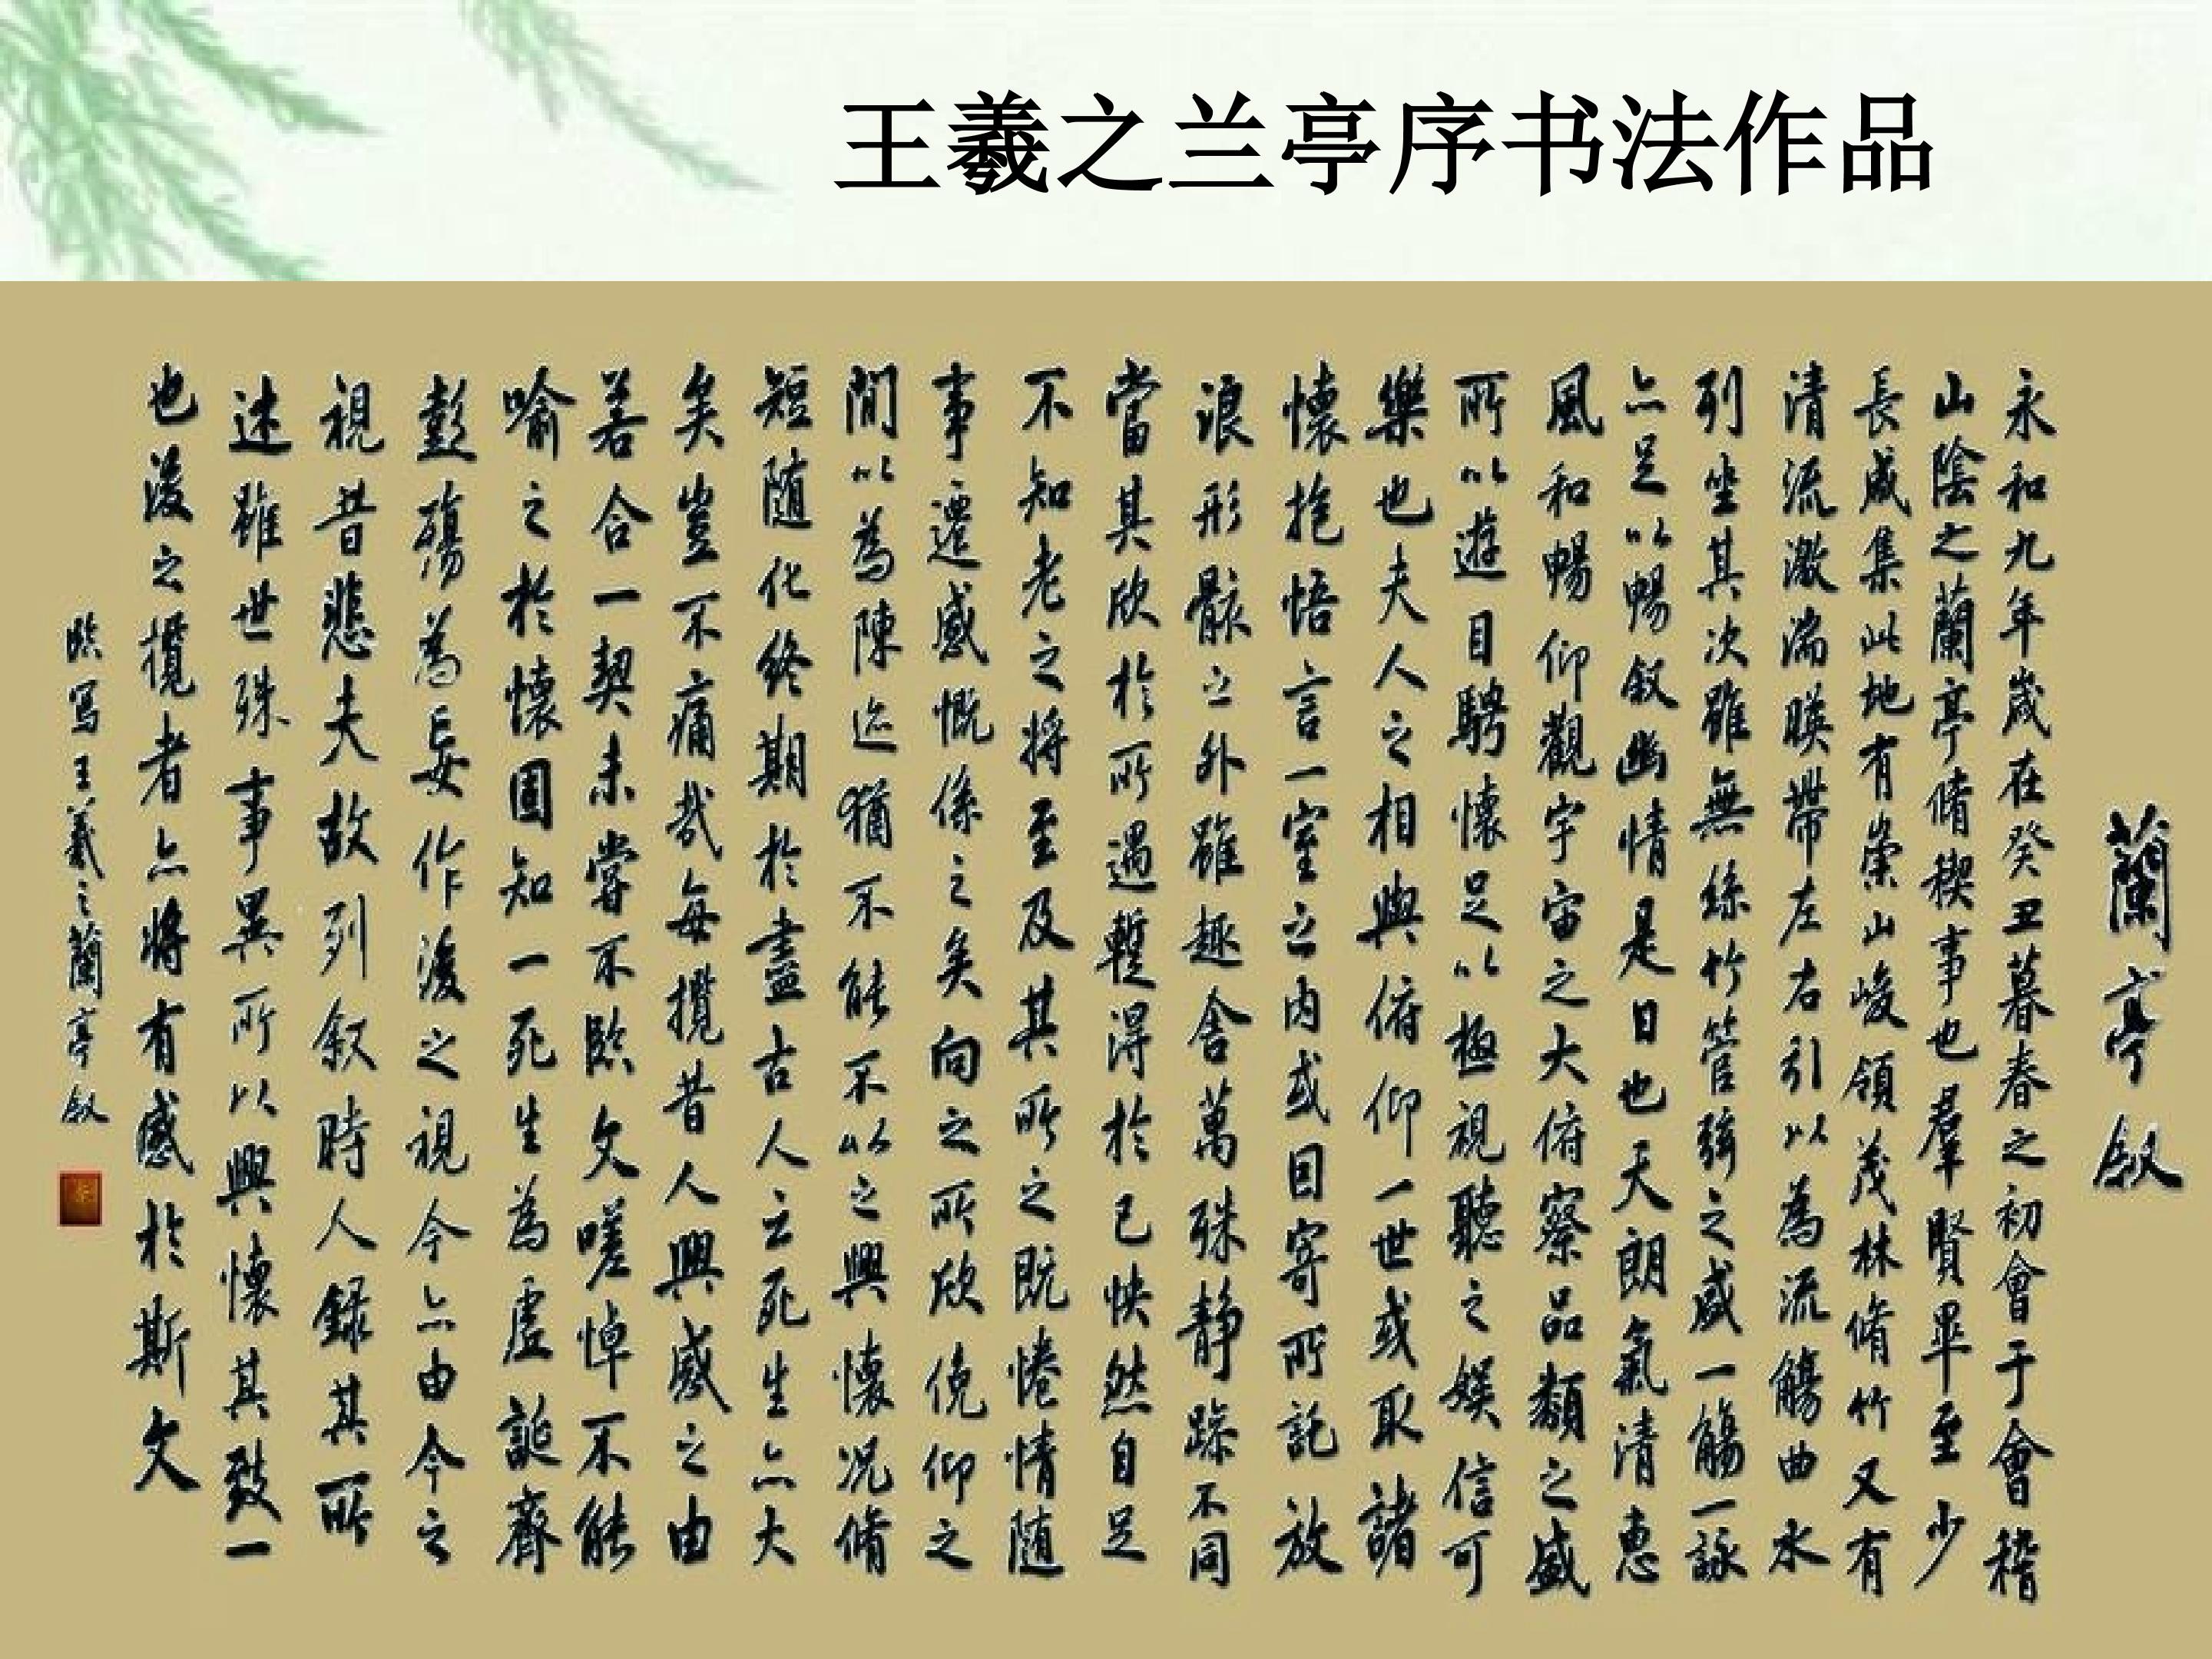 王羲之兰亭序书法作品
蘭亭叙
永和九年歲在癸丑暮春之初會于會稽
山陰之蘭亭脩稧事也羣賢畢至少
長咸集此地有崇山峻領茂林脩竹又有
清流激湍暎帶左右引以為流觴曲水
列坐其次雖無絲竹管絃之盛一觴一詠
亦足以暢叙幽情是日也天朗氣清惠
風和暢仰觀宇宙之大俯察品類之盛
所以遊目騁懷足以極視聽之娛信可
樂也夫人之相與俯仰一世或取諸
懷抱悟言一室之內或因寄所託放
浪形骸之外雖趣舍萬殊静躁不同
當其欣於所遇暫得於己怏然自足
不知老之将至及其所之既惓情随
事遷感慨係之矣向之所欣俛仰之
間以為陳迹猶不能不以之興懷况脩
短随化終期於盡古人云死生亦大
矣豈不痛哉每攬昔人興感之由
若合一契未嘗不臨文嗟悼不能
喻之於懷固知一死生為虛誕齊
彭殤為妄作後之視今亦由今之
視昔悲夫故列叙時人録其所
述雖世殊事異所以興懷其致一
也後之攬者亦将有感於斯文
臨写王羲之蘭亭叙